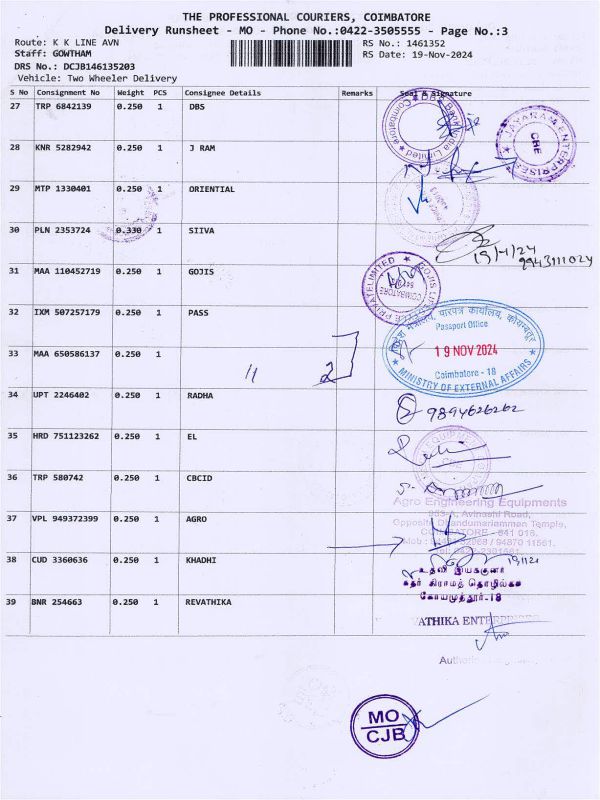 THE PROFESSIONAL COURIERS, COIMBATORE
Delivery Runsheet - MO - Phone No.:0422-3505555 - Page No.:3
Route: K K LINE AVN
RS No.: 1461352
Staff: GOWTHAM
RS Date: 19-Nov-2024
DRS No.: DCJB146135203
Vehicle: Two Wheeler Delivery
S No Consignment No Weight PCS Consignee Details Remarks Seal & Signature
27 TRP 6842139 0.250 1 DBS
DBS Bank India Limited Coimbatore
JAYARAM ENTERPRISES
CBE
28 KNR 5282942 0.250 1 J RAM
29 MTP 1330401 0.250 1 ORIENTIAL
30 PLN 2353724 0.330 1 SIIVA
19/11/24
9943111024
31 MAA 110452719 0.250 1 GOJIS
GOJIS PRIVATE LIMITED
COIMBATORE
32 IXM 507257179 0.250 1 PASS
विदेश मंत्रालय, पारपत्र कार्यालय, कोयम्बतूर
Passport Office
19 NOV 2024
Coimbatore - 18
MINISTRY OF EXTERNAL AFFAIRS
33 MAA 650586137 0.250 1
11 2
34 UPT 2246402 0.250 1 RADHA
9894626262
35 HRD 751123262 0.250 1 EL
CBE
36 TRP 580742 0.250 1 CBCID
Agro Engineering Equipments
Avinashi Road,
Opposite Dhandumariamman Temple,
COIMBATORE - 641 018.
37 VPL 949372399 0.250 1 AGRO
38 CUD 3360636 0.250 1 KHADHI
உதவி இயக்குனர்
கதர் கிராமத் தொழில்கள்
கோயமுத்தூர்-18
39 BNR 254663 0.250 1 REVATHIKA
VATHIKA ENTERPRISES
MO
CJB